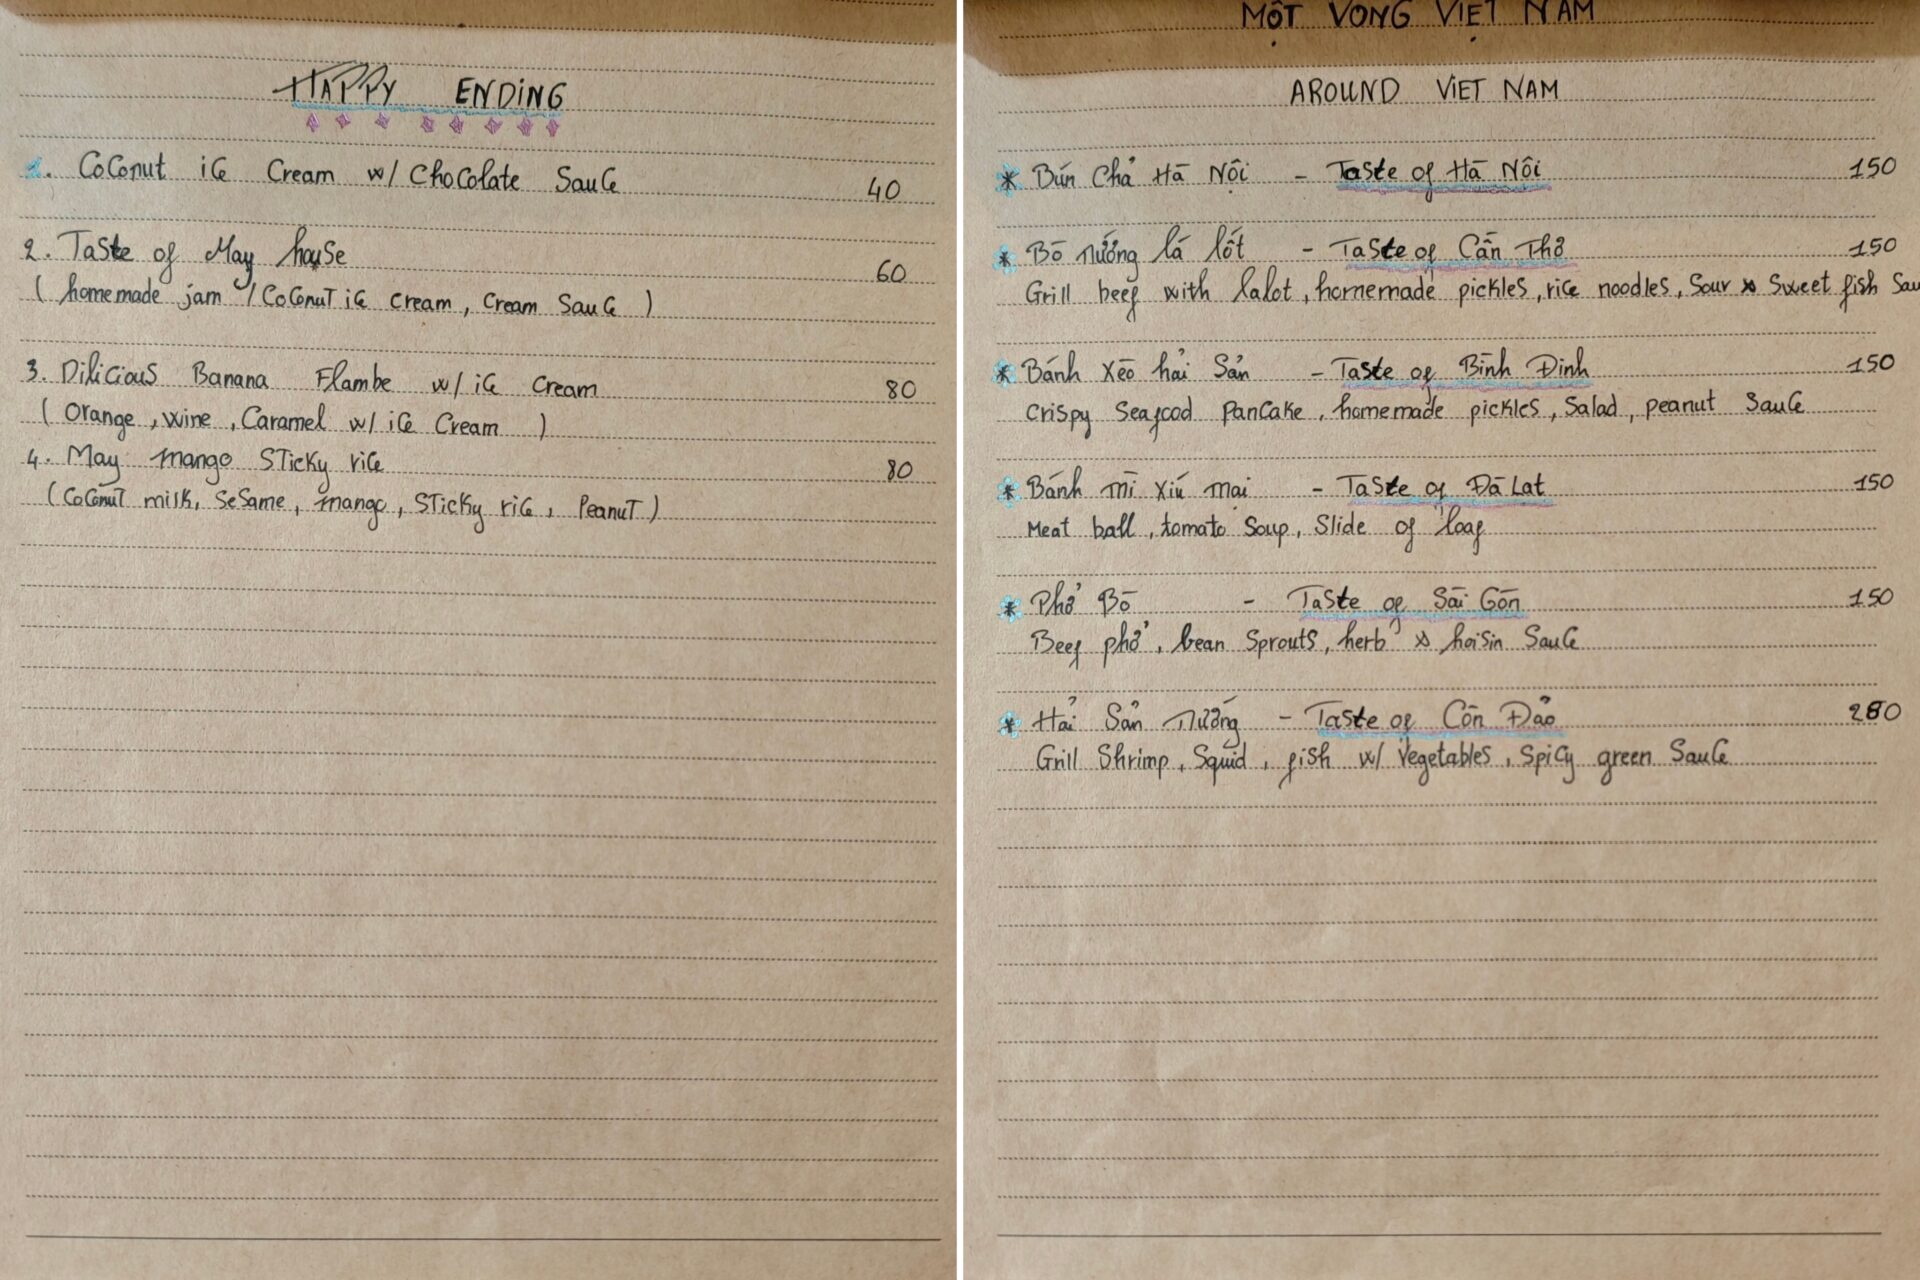 HAPPY ENDING
1. Coconut ice Cream w/ Chocolate Sauce 40
2. Taste of May house 60
( homemade jam / Coconut ice cream, Cream Sauce )
3. Dilicious Banana Flambe w/ ice cream 80
( Orange, wine, Caramel w/ ice Cream )
4. May mango Sticky rice 80
(Coconut milk, Sesame, mango, Sticky rice, Peanut)
MỘT VÒNG VIỆT NAM
AROUND VIET NAM
* Bún Chả Hà Nội - Taste of Hà Nôi 150
* Bò nướng lá lốt - Taste of Cần Thơ 150
Grill beef with lalot, homemade pickles, rice noodles, Sour & Sweet fish Sau
* Bánh Xèo hải Sản - Taste of Bình Đinh 150
Crispy Seafood Pancake, homemade pickles, Salad, peanut Sauce
* Bánh mì xíu mại - Taste of Đà Lat 150
Meat ball, tomato Soup, Slide of loaf
* Phở Bò - Taste of Sài Gòn 150
Beef phở, bean Sprouts, herb & hoisin Sauce
* Hải Sản nướng - Taste of Côn Đảo 280
Grill Shrimp, Squid, fish w/ Vegetables, Spicy green Sauce